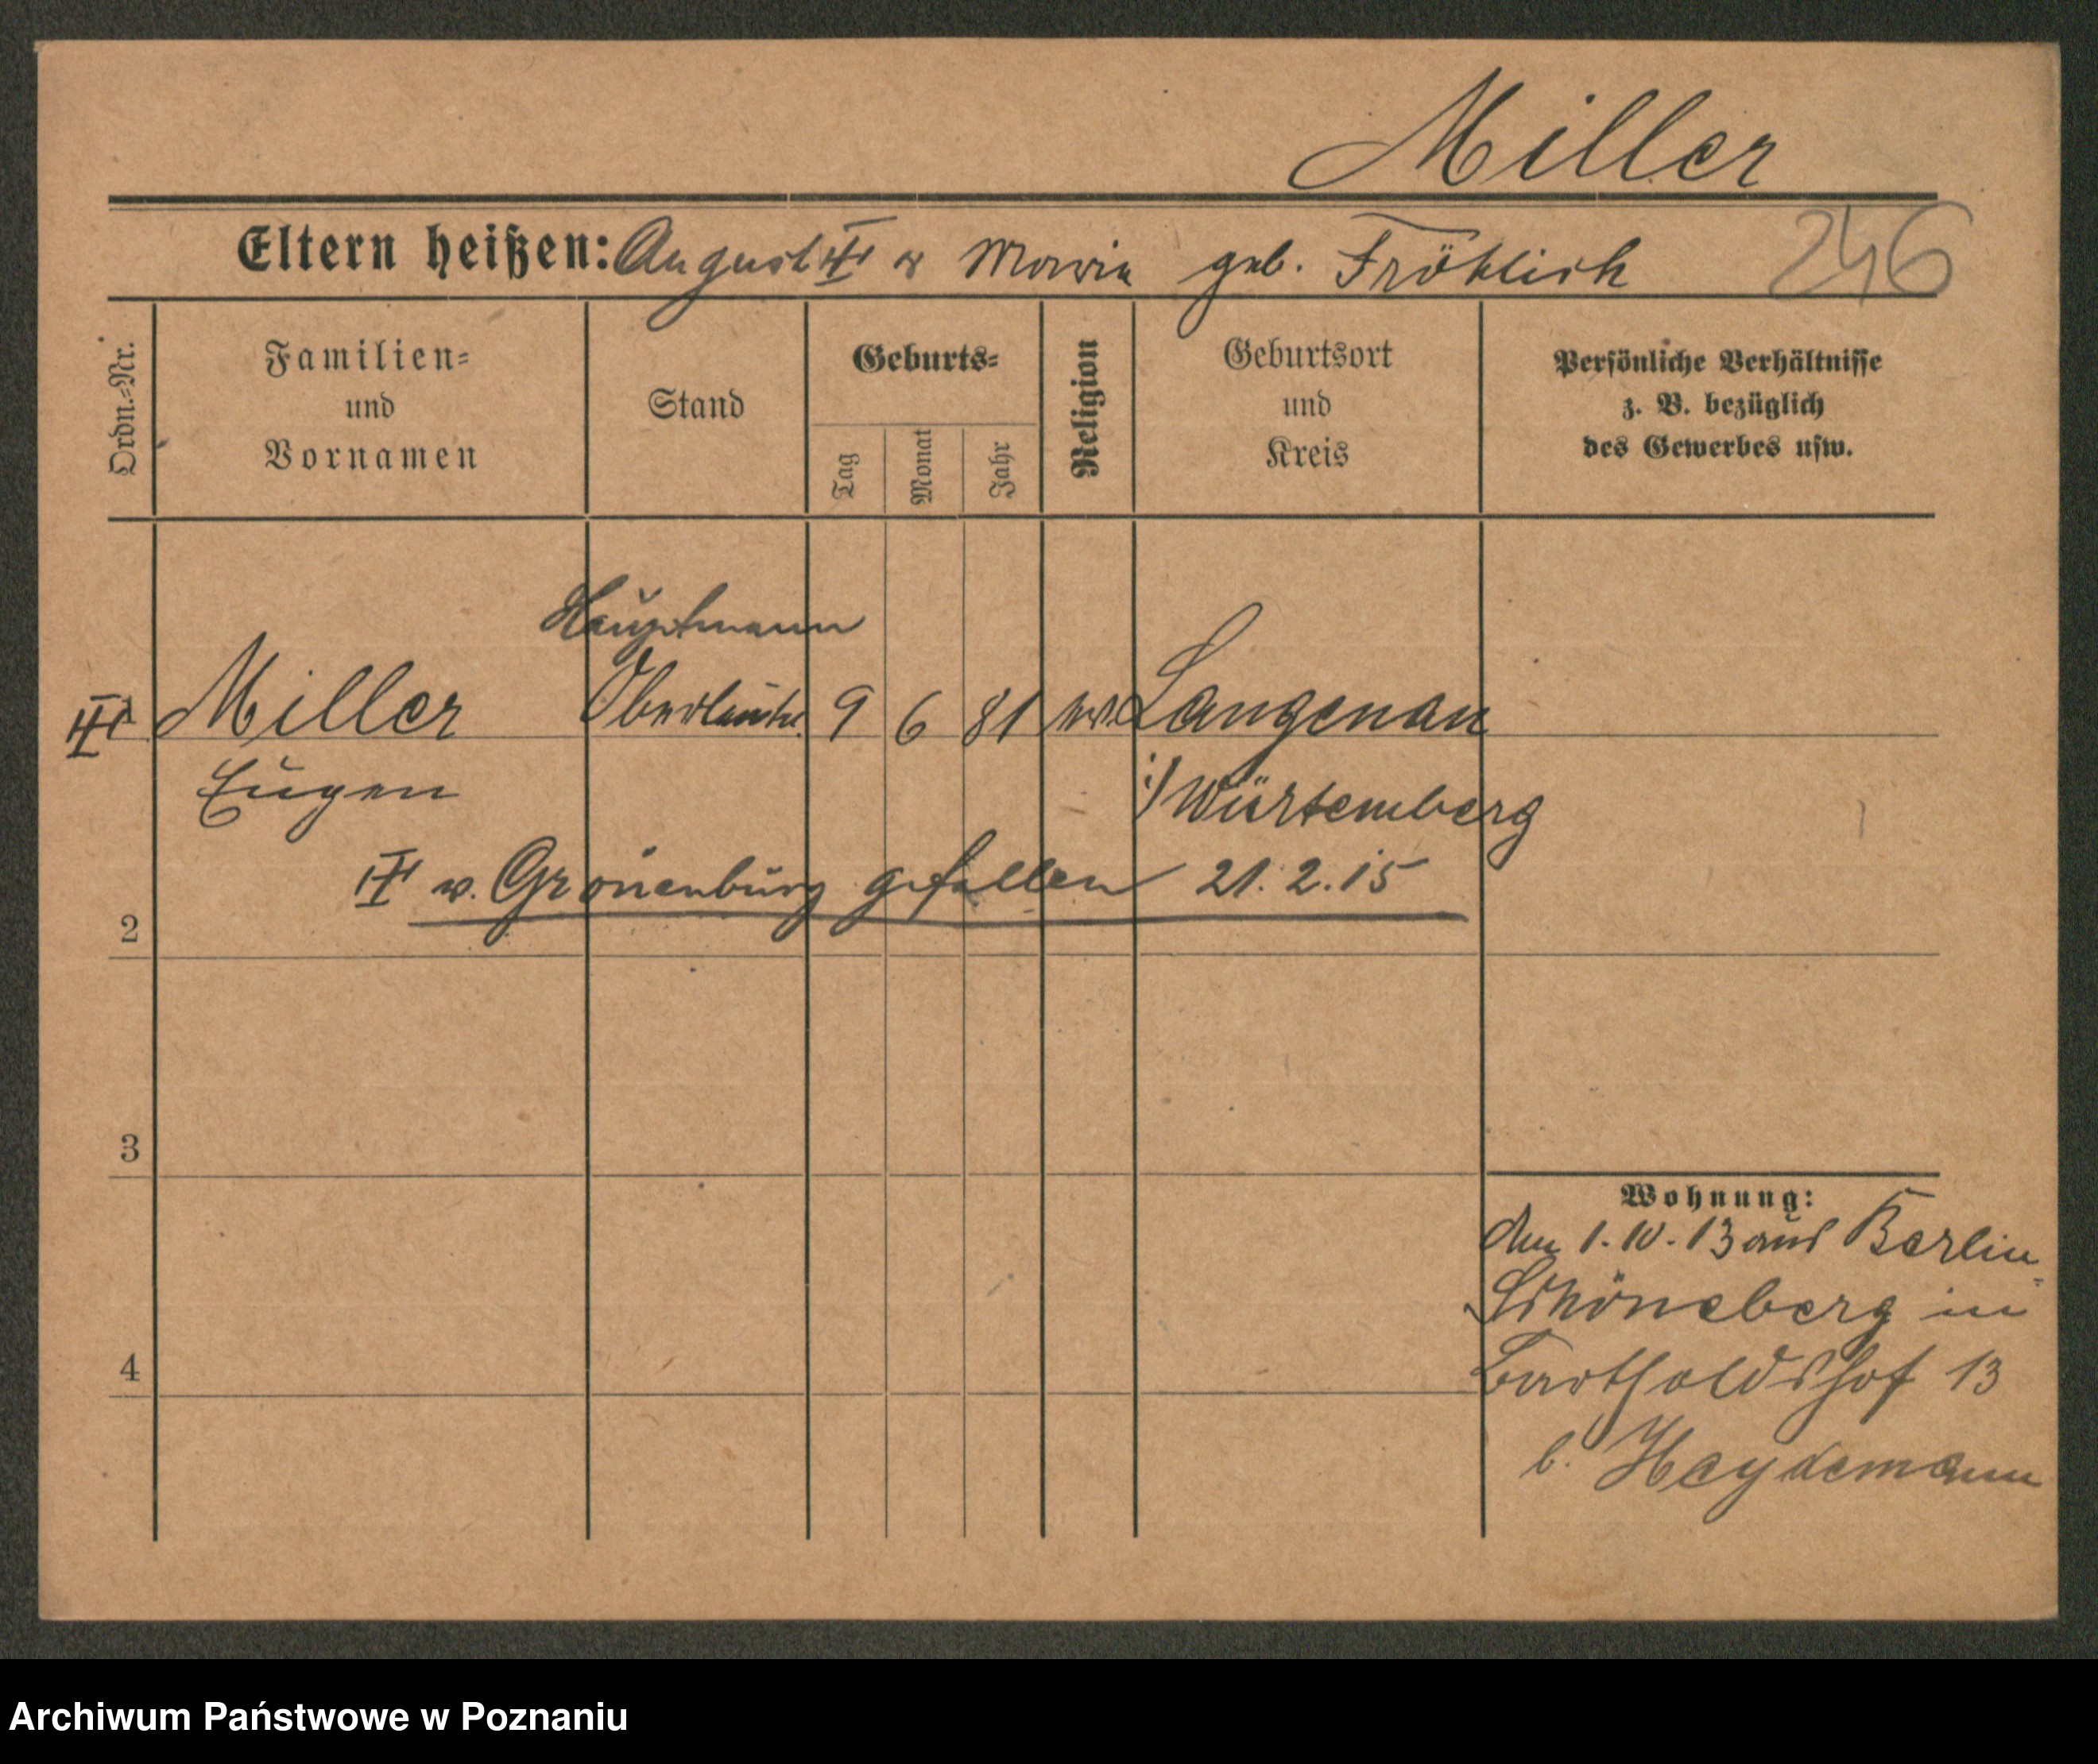 Miller
Eltern heißen: August u Maria geb. Fröhlich 246
Ordn.-Nr.
Familien-
und
Vornamen
Stand
Geburts-
Tag
Monat
Jahr
Religion
Geburtsort
und
Kreis
Persönliche Verhältnisse
z. B. bezüglich
des Gewerbes usw.
Hauptmann
Miller Oberleutn. 9 6 81 Langenau
Eugen i/ Würtemberg
gefallen 21.2.15
2
3
4
Wohnung:
den 1.10.13 aus Berlin-
Schöneberg in
Bartholdshof 13
b. Heydemann
Archiwum Państwowe w Poznaniu